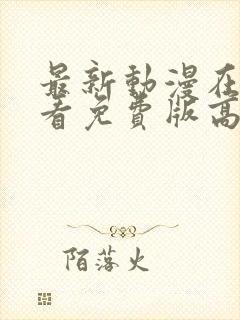 最新動漫在
看免費版高
陌落火